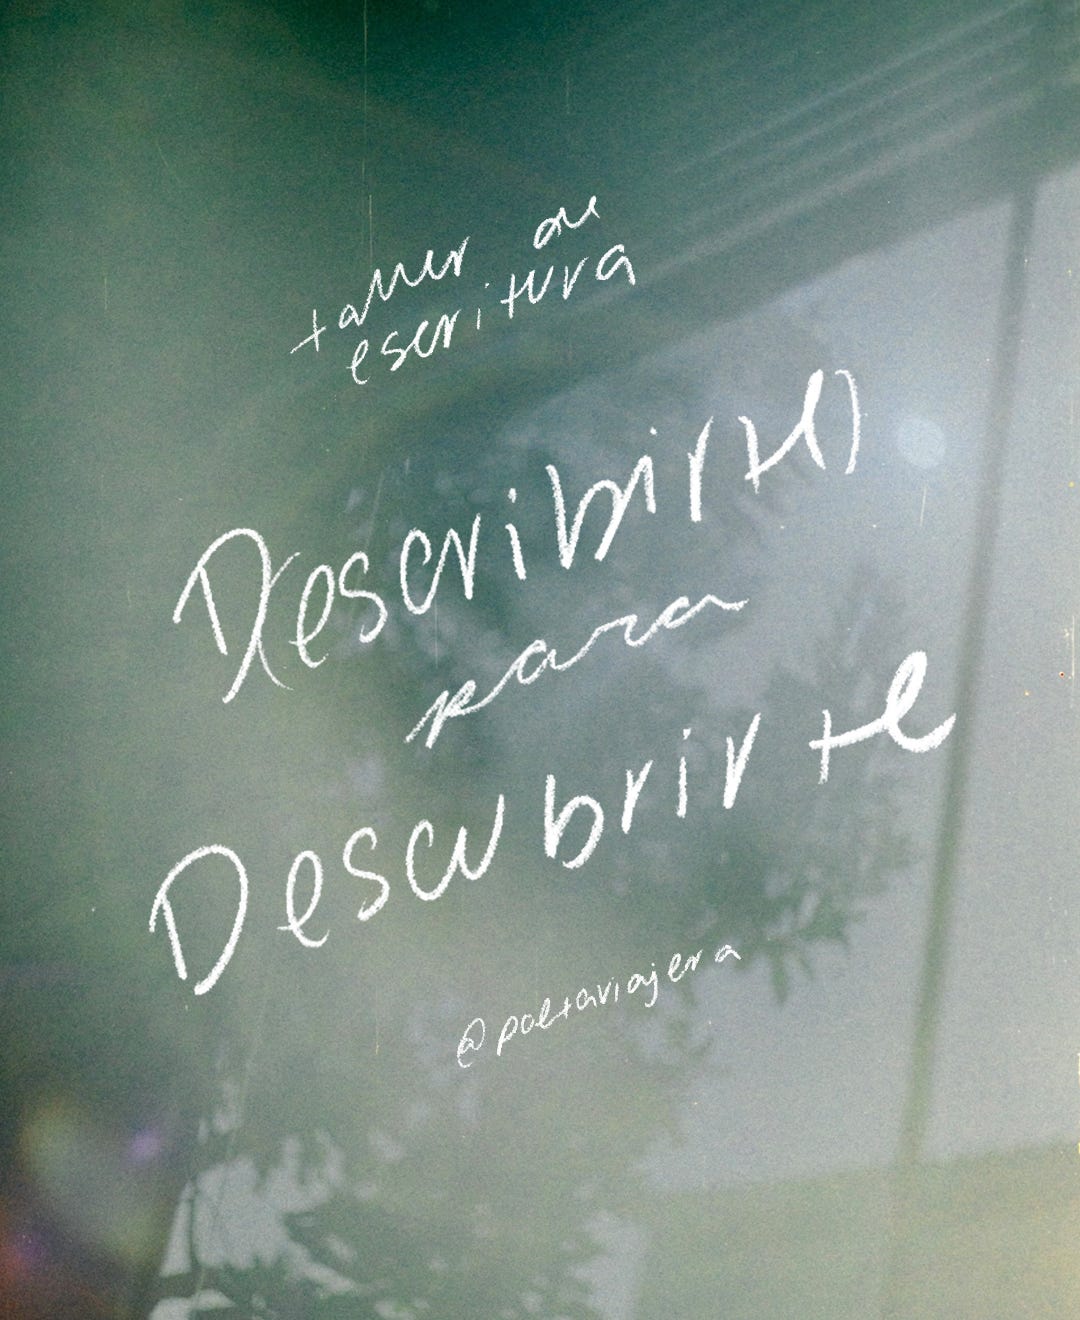 taller de
escritura
D(escribirte)
para
Descubrirte
@poetaviajera